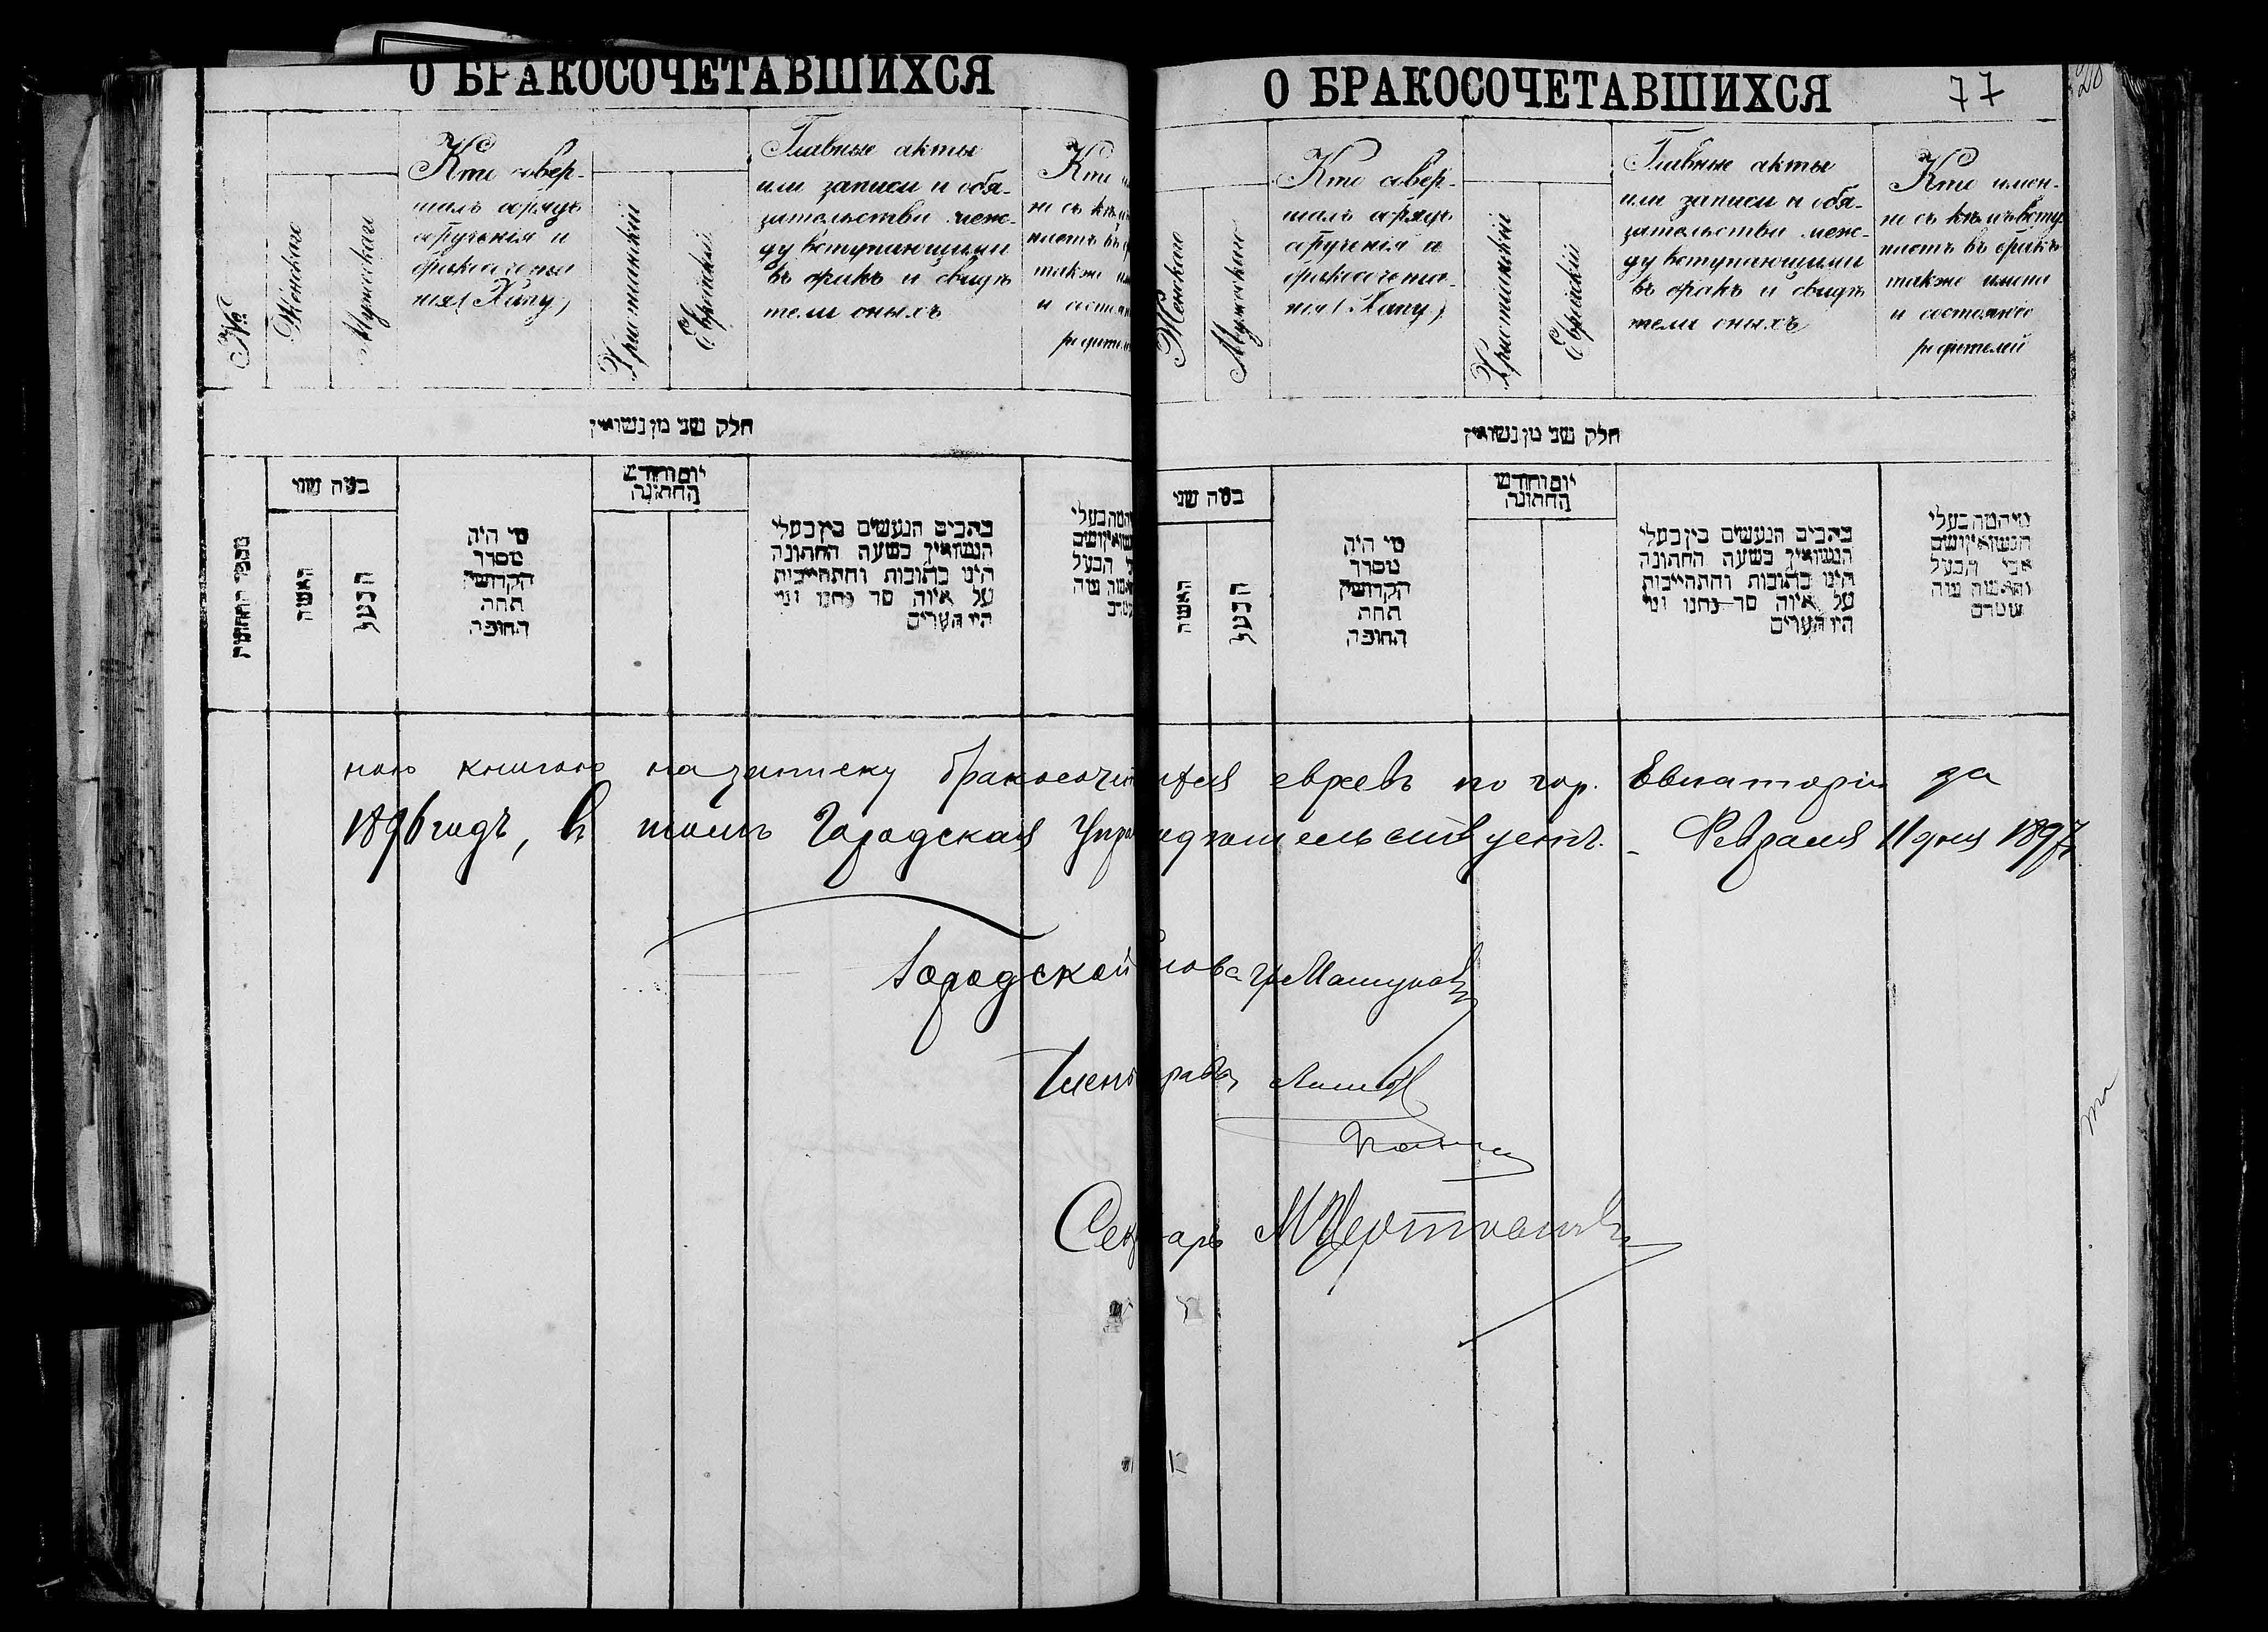 О БРАКОСОЧЕТАВШИХСЯ
№
Женскаго
Мужескаго
Кто совер-
шалъ обрядъ
обрученія и
бракосочета
нія (Хупу)
Христіанскій
Еврейскій
Главные акты
или записи и обя-
зательства меж-
ду вступающими
въ бракъ и свидѣ
тели оныхъ
Кто
но съ кѣмъ
также
и состоян
родител
חלק שני מן נשואין
מספר החתונות
כמה שני
האשה
הבעל
מי היה
מסדר
הקדושין
תחת
החופה
יום וחודש
החתונה
כתבים הנעשים בין בעלי
הנשואין בשעת החתונה
היינו כתובות והתחייבות
על איזה סך נתנו ומי
היו העדים
О БРАКОСОЧЕТАВШИХСЯ
77
Женскаго
Мужескаго
Кто совер-
шалъ обрядъ
обрученія и
бракосочета-
нія (Хупу)
Христіанскій
Еврейскій
Главные акты
или записи и обя-
зательства меж-
ду вступающими
въ бракъ и свидѣ
тели оныхъ
Кто имен-
но съ кѣмъ всту-
паетъ въ бракъ
также имена
и состояніе
родителей
חלק שני מן נשואין
כמה שני
האשה
הבעל
מי היה
מסדר
הקדושין
תחת
החופה
יום וחודש
החתונה
כתבים הנעשים בין בעלי
הנשואין בשעת החתונה
היינו כתובות והתחייבות
על איזה סך נתנו ומי
היו העדים
מי המה בעלי
הנשואין ושם
אבי הבעל
והאשה
ною книгою на записку бракосочет евреевъ по гор. Евпаторіи за
1896 годъ, въ томъ Городская Упра достовѣрствуетъ. Февраля 11 дня 1897
Городской лова
Члены равы
Сек арь